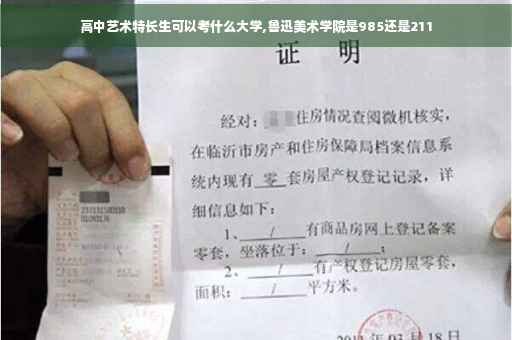 高中艺术特长生可以考什么大学,鲁迅美术学院是985还是211
证 明
经对: 住房情况查阅微机核实,
在临沂市房产和住房保障局档案信息系
统内现有 零 套房屋产权登记记录,详
细信息如下:
1、 / 有商品房网上登记备案
零套,坐落位于: / ;
2、 / 有产权登记房屋零套,
面积: / 平方米。
03月18日